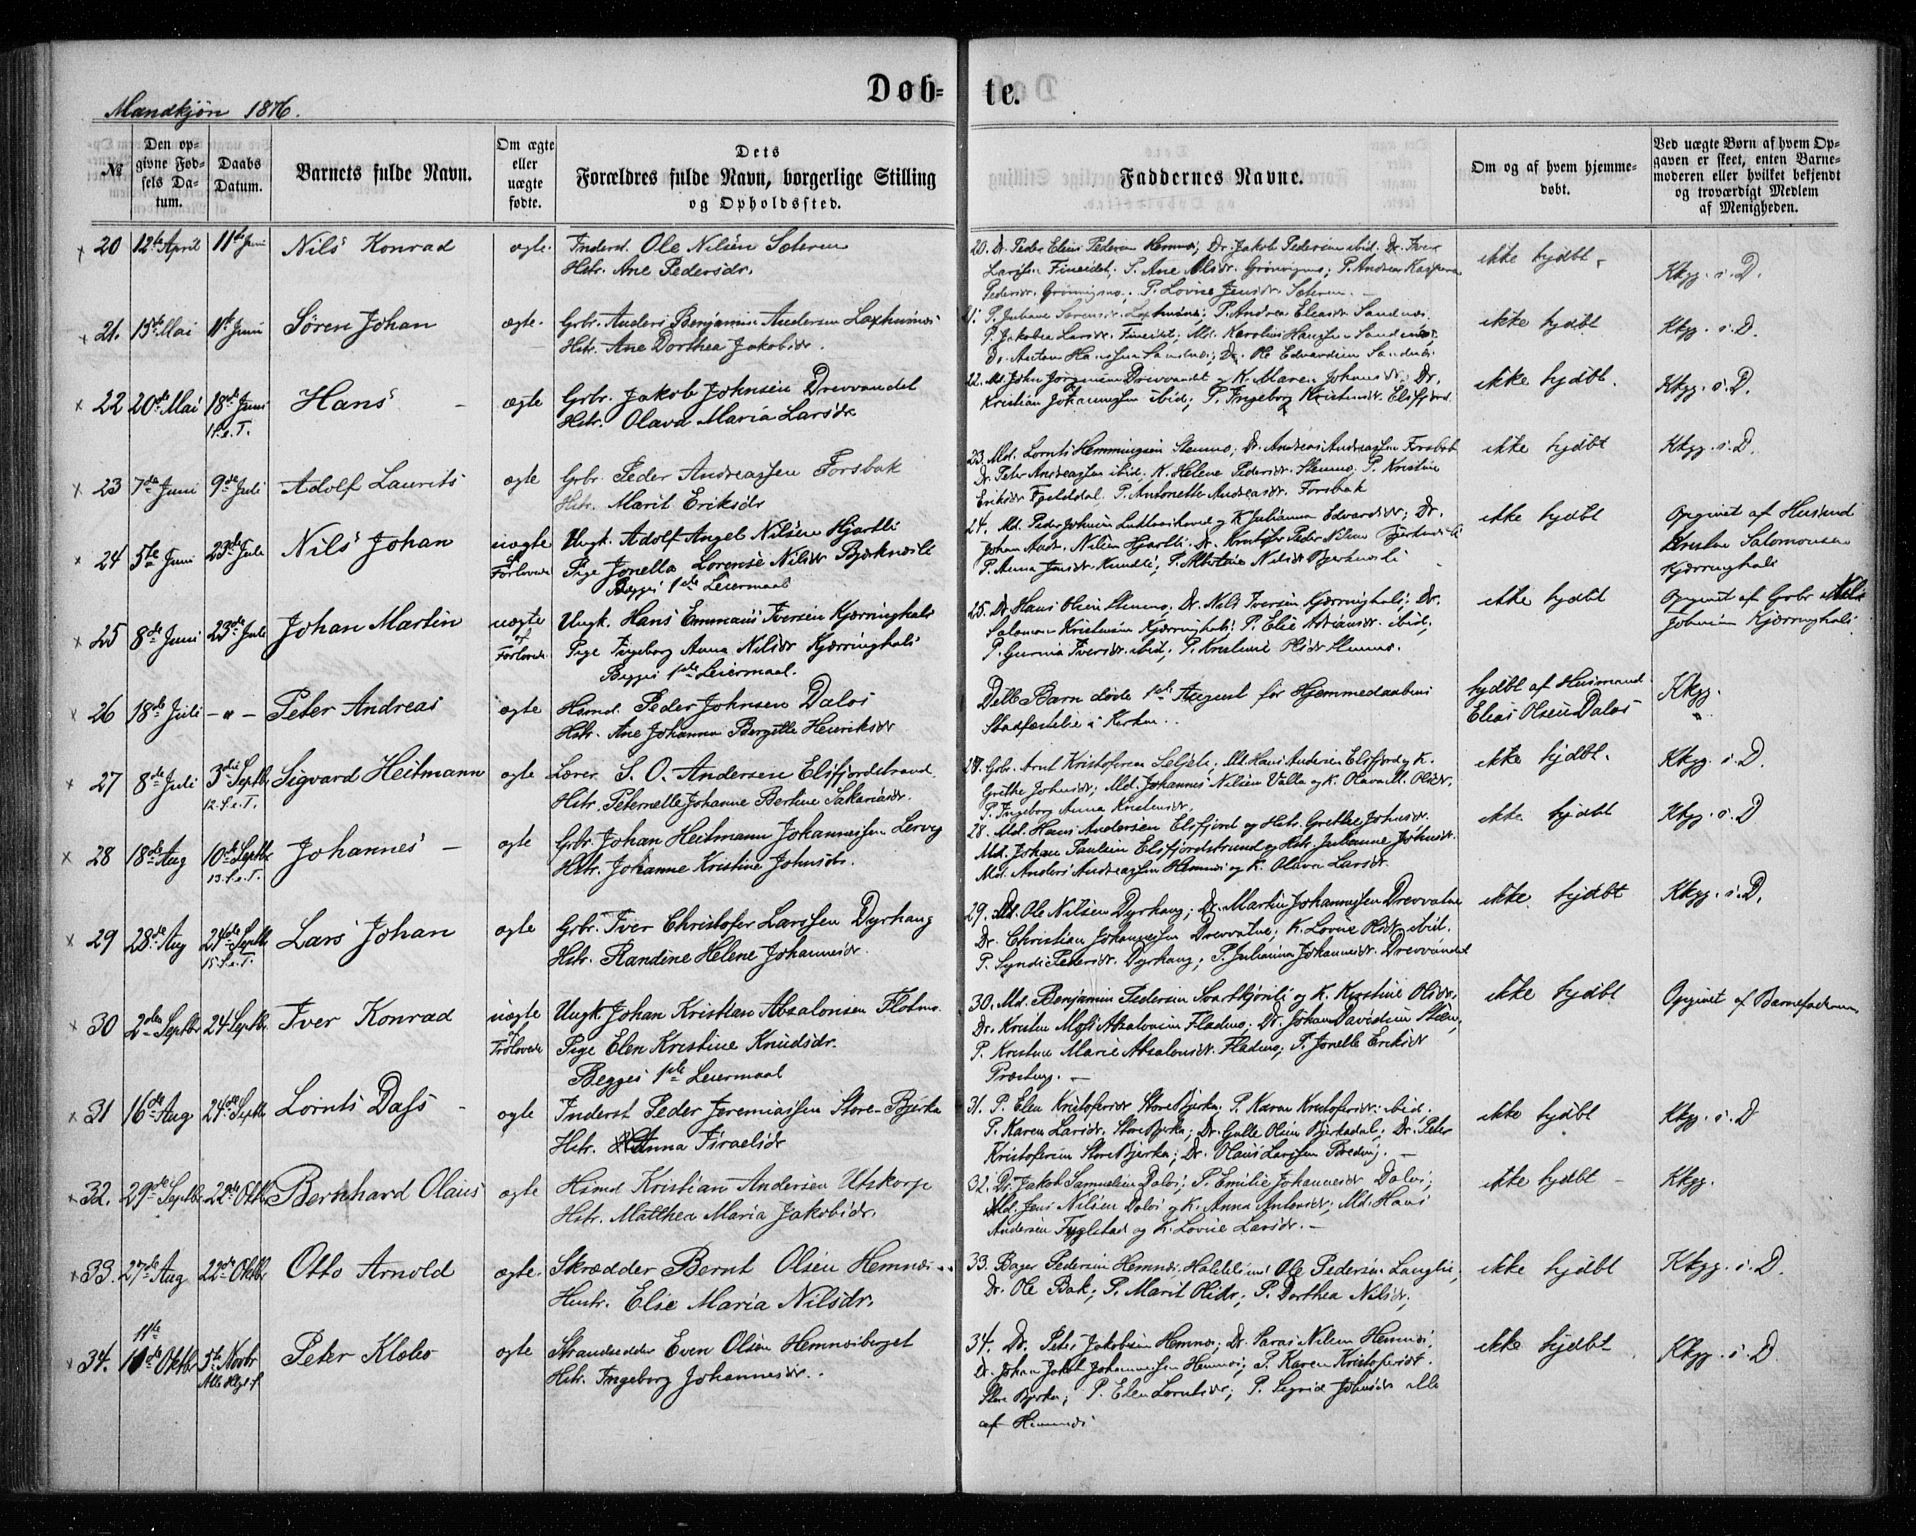 Døb=te.
Mandkjøn 1876.
№
Den opgivne Fødsels Datum.
Daabs Datum.
Barnets fulde Navn.
Om ægte eller uægte fødte.
Dets Forældres fulde Navn, borgerlige Stilling og Opholdssted.
Faddernes Navne.
Om og af hvem hjemmedøbt.
Ved uægte Børn af hvem Opgaven er skeet, enten Barnemoderen eller hvilket bekjendt og troværdigt Medlem af Menigheden.
20 12te April 11te Juni Nils Konrad ægte. Inderst. Ole Nilsen Sæteren
Hstr. Ane Pedersdr.
20. Dr. Peder Elias Pedersen Hemnæs; Dr. Jakob Pedersen ibid; Dr. Iver
Larssen Fineidet; P. Ane Olsdr. Grønvigmo; P. Andrea
Pedersdr. Grønvigmo; P. Lovise Jensdr. Sæteren.
ikke hjdbt.
Kkgg. i. D.
21. 15de Mai 11te Juni Søren Johan ægte. Grbr. Anders Benjamin Andersen
Hstr. Ane Dorthea Jakobsdr.
21. P. Juliane Sørensdr. P. Andrea Eliasdr Sandnæs.
P. Jakobea Larsdr. Fineidet; Md. Karolius Hanssen Sandnæs;
Dr. Anton Hanssen Sandnæs; Dr. Ole Edvardsen Sandnæs.
ikke hjdbt
Kkgg. i. D.
22 20de Mai 18de Juni Hans - ægte Grbr. Jakob Johnsen Drevvandet
1 S. e. T.
Hstr. Olava Maria Larsdr.
22. Md. John Jørgensen Drevvandet og K. Maren Johansdr.; Dr.
Kristian Johannessen ibid; P. Ingeborg Kristensdr. Elsfjord.
ikke hjdbt.
Kkgg. i. D.
23 7de Juni 9de Juli Adolf Laurits ægte Grbr. Peder Andreassen Forsbak
Hstr. Marit Eriksdr
23. Md. Lornts Hemmingsen Stenmo, Dr. Andreas Andreassen Forsbak
Dr. Peter Andreassen ibid; K. Helene Pedersdr. Stenmo, P. Kristine
Eriksdr Fjelddal, P. Antonette Andreasdr. Forsbak
ikke hjdbt
Kkgg. i. D.
24 5te Juni 23de Juli Nils Johan uægte Ungk. Adolf Angel Nilsen Hjartli
af Forlovede
Pige Jonella Lorense Nilsdr Bjerknæsli
Begges 1ste Leiermaal
24. Md. Peder Johnsen og K. Julianna Edvardsdr; Dr.
Johan Nilsen Hjartli. Dr. Kristofer Peder Nilsen Bjerknæsli
P. Anna Jensdr. P. Nilsdr Bjerknæsli
ikke hjdbt
Opgivet af Husmd
Kristen Salomonsen
Kjærringhals
25 8de Juni 23de Juli Johan Martin uægte Ungk. Hans Emmaus Iversen Kjærringhals
af Forlovede
Pige Ingeborg Anna Nilsdr Kjærringhals
Begges 1ste Leiermaal.
25. Dr. Hans Olsen Stenmo. Dr. Nils Iversen Kjærringhals; Dr.
Salomon Kristensen Kjærringhals; P. Elie Adriansdr. ibid;
P. Gurina Iversdr. ibid; P. Kristine Olsdr Stenmo.
ikke hjdbt
Opgivet af Grbr Nils
Johnsen Kjærringhals
26 18de Juli - " - Peter Andreas ægte Hsmd. Peder Johnsen Dalos
Hstr. Ane Johanna Bergitte Henriksdr
Dette Barn døde 1ste August før Hjemmedaabens
Stadfæstelse i Kirken.
hjdbt af Husmand
Elias Olsen Dalos
Kkgg.
27 8de Juli 3die Septbr Sigvard Heitmann ægte Lærer S. O. Andersen Elsfjordstrand
12. S. e. T.
Hstr. Peternelle Johanne Bertine Sakariasdr.
27. Grbr. Arnt Kristofersen Md Hans Andersen Elsfjord og K.
Grethe Johnsdr; Md. Johannes Nilsen Valla og K. Olava M. Olsdr.
P. Ingeborg Anna Kristensdr.
ikke hjdbt.
Kkgg. i. D.
28 18de Aug 10de Septbr Johannes - ægte Grbr. Johan Heitmann Johannessen Lervig
13. S. e. T.
Hstr. Johanne Kristine Johnsdr.
28. Md. Hans Andersen Elsfjord og Hstr. Grethe Johnsdr.
Md. Johan Paulsen Elsfjordstrand og Hstr. Julianne Johnsdr.
Md. Anders Andreassen Hemnæs og K. Olava Larsdr.
ikke hjdbt
Kkgg. i. D
29 28de Aug 24de Septbr Lars Johan ægte Grbr. Iver Christofer Larssen Dyrhaug
15 S. e. T.
Hstr. Randine Helene Johannesdr.
29. Md. Ole Nilsen Dyrhaug; Dr. Martin Johannessen Drevvatne
Dr. Christian Johannessen Drevvatne; K. Lovise Olsdr. ibid.
P. Synds Pedersdr. Dyrhaug; P. Julianna Johannesdr. Drevvandet
ikke hjdbt
Kkgg. i. D.
30 2den Septbr 24 Septbr Iver Konrad uægte Ungk. Johan Kristian Absalonsen Flotmo.
af Forlovede
Pige Elen Kristine Knudsdr.
Begges 1ste Leiermaal
30. Md. Benjamin Pedersen og K. Kristine Olsdr.
Dr. Kristen Absalonsen Fladmo; Dr. Johan Davidsen
P. Kristine Marie Absalonsdr. Fladmo; P. Jonelle Eriksdr
ikke hjdbt
Opgivet af Barnefaderen
31 16de Aug 24de Septbr Lornts Dass - ægte Inderst Peder Jeremiassen Store-Bjerka
Hstr. Anna Israelsdr
31. P. Elen Kristofersdr Store Bjerka; P. Karen Kristofersdr. ibid.
P. Karen Larsdr. Store Bjerka; Dr. Gulle Olsen Bjerkadal; Dr. Peter
Kristofersen Store Bjerka; Dr. Olaus Larssen Bredvig.
ikke hjdbt
Kkgg. i. D
32. 29de Septbr 22de Oktbr Bernhard Olaus ægte Hsmd Kristian Andersen Utskarpe
Hstr. Matthea Maria Jakobsdr.
32. Dr. Jakob Samuelsen Dalos; P. Emilie Johannesdr Dalos;
Md. Jens Nilsen Dalos og K. Anna Antonsdr; Md. Hans
Andersen Fuglstad og K. Lovise Larsdr.
ikke hjdbt
Kkgg.
33. 27de Aug 22de Oktbr Otto Arnold ægte. Skrædder Bernt Olsen Hemnæs
Hustr. Elise Maria Nilsdr.
33. Bager Pedersen Hemnæs; Ole Pedersen
Dr. Ole Bak; P. Marit Olsdr; P. Dorthea Nilsdr;
ikke hjdbt
Kkgg. i. D.
34. 11te Oktbr 5te Novbr Peter Klæbo ægte Strandsidder Even Olsen Hemnæsberget
Alle Helgs f.
Hstr. Ingeborg Johannesdr.
34. Dr. Peter Jakobsen Hemnæs; Dr. Nilsen Hemnæs
Dr. Johan Jakob Johannessen Hemnæs; P. Karen Kristofersdr.
Store Bjerka; P. Elen Lorntsdr; P. Sigrid Johnsdr alle
af Hemnæs
ikke hjdbt
Kkgg. i. D